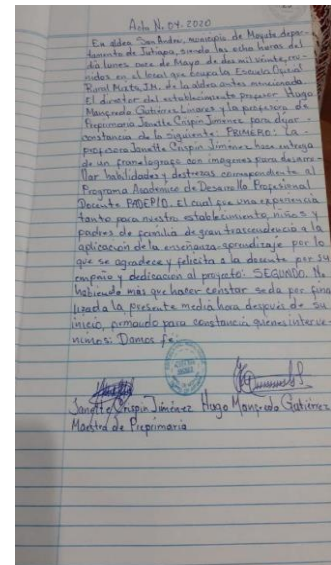 Acta N. 04-2020
En aldea San Andrés, municipio de Moyuta depar-
tamento de Jutiapa, siendo las ocho horas del
día lunes once de Mayo de dos mil veinte, reu-
nidos en el local que ocupa la Escuela Oficial
Rural Mixta, J.M. de la aldea antes mencionada
El director del establecimiento profesor Hugo
Manfredo Gutiérrez Linares y la profesora de
Preprimaria Janette Crispin Jiménez para dejar
constancia de lo siguiente: PRIMERO: La
profesora Janette Crispin Jiménez hace entrega
de un franelografo con imagenes para desarro-
llar habilidades y destrezas correspondiente al
Programa Academico de Desarrollo Profesional
Docente PADEP/D. El cual fue una experiencia
tanto para nuestro establecimiento, niños y
padres de familia de gran trascendencia a la
aplicación de la enseñanza-aprendizaje por lo
que se agradece y felicita a la docente por su
empeño y dedicación al proyecto: SEGUNDO. No
habiendo más que hacer constar se da por fina
lizada la presente media hora después de su
inicio, firmando para constancia quienes interve
nimos: Damos fe.
Janette Crispin Jiménez Hugo Manfredo Gutiérrez
Maestra de Preprimaria